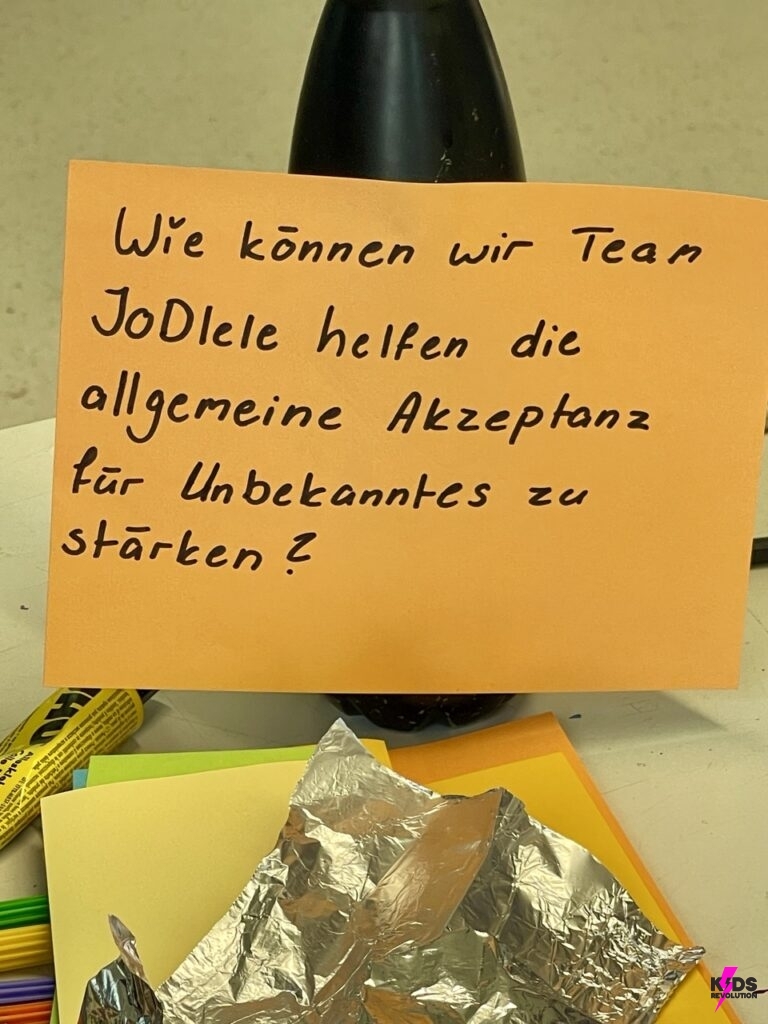 Wie können wir Team
JoDlele helfen die
allgemeine Akzeptanz
für Unbekanntes zu
stärken?
KIDS
REVOLUTION